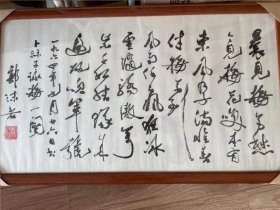 曩见梅花愁
今见梅花笑本有
东风孕满怀春
伴梅花到
风雨任疯狂冰
雪随骄傲万
紫千红结队来
遍地吹军号
一九六 年 月廿六日书
卜算子咏梅一阕
郭沫若